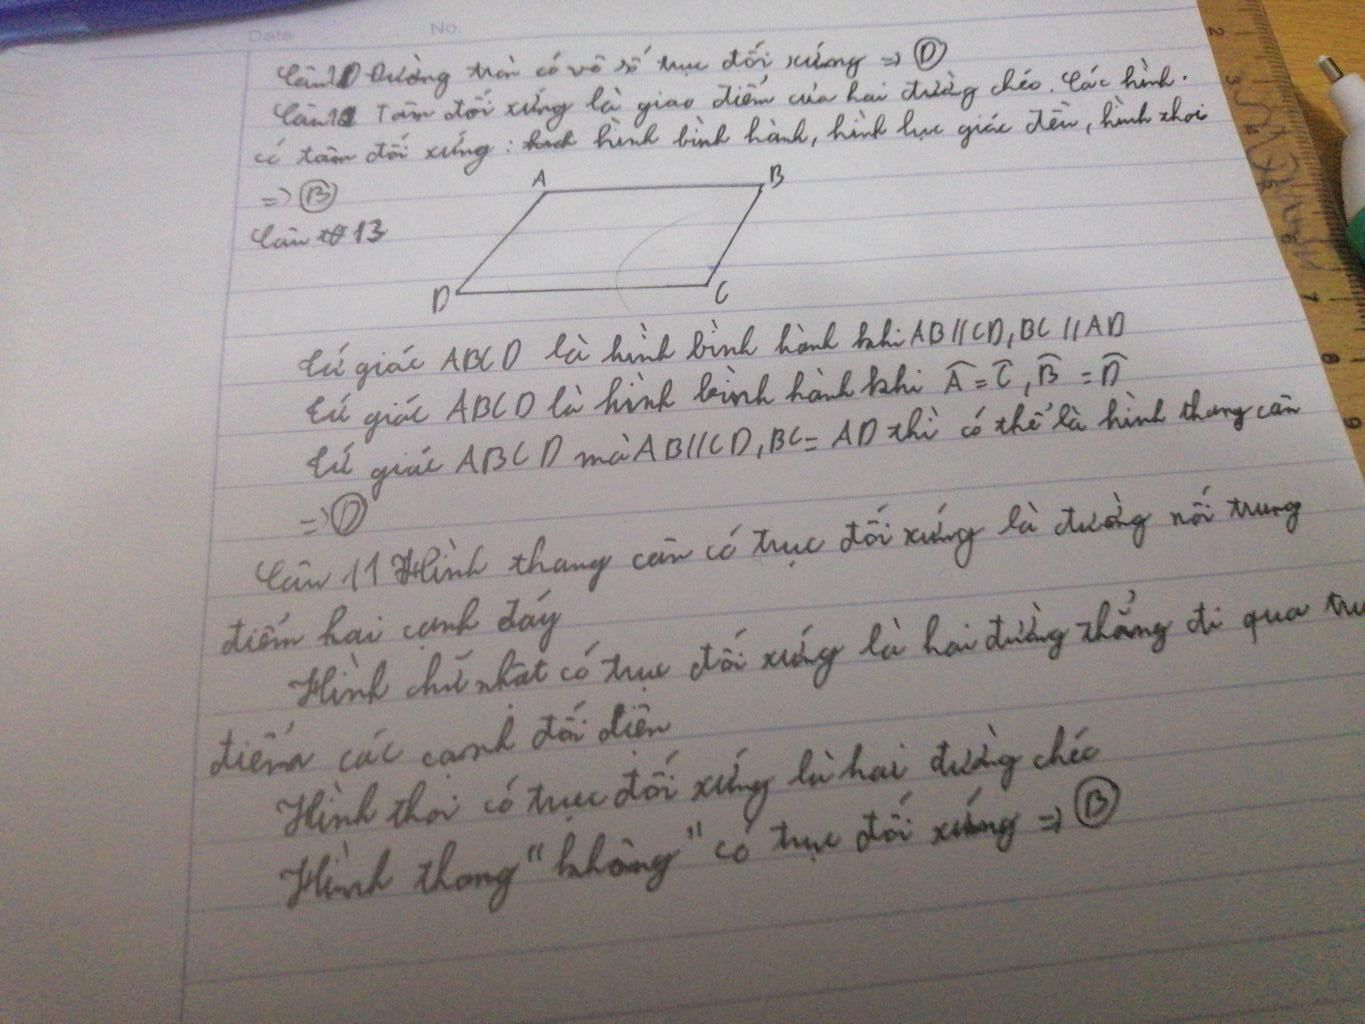 Date No.
Câu 10 Đường tròn có vô số trục đối xứng => D
Câu 12 Tâm đối xứng là giao điểm của hai đường chéo. Các hình.
có tâm đối xứng: hình bình hành, hình lục giác đều, hình thoi
=> B
Câu 13
A B
D C
Tứ giác ABCD là hình bình hành khi AB//CD, BC//AD
Tứ giác ABCD là hình bình hành khi Â = Ĉ, B̂ = D̂
Tứ giác ABCD mà AB//CD, BC = AD thì có thể là hình thang cân
=> D
Câu 11 Hình thang cân có trục đối xứng là đường nối trung
điểm hai cạnh đáy
Hình chữ nhật có trục đối xứng là hai đường thẳng đi qua tru
điểm các cạnh đối diện
Hình thoi có trục đối xứng là hai đường chéo
Hình thang "không" có trục đối xứng => B
2
3
7
8
9